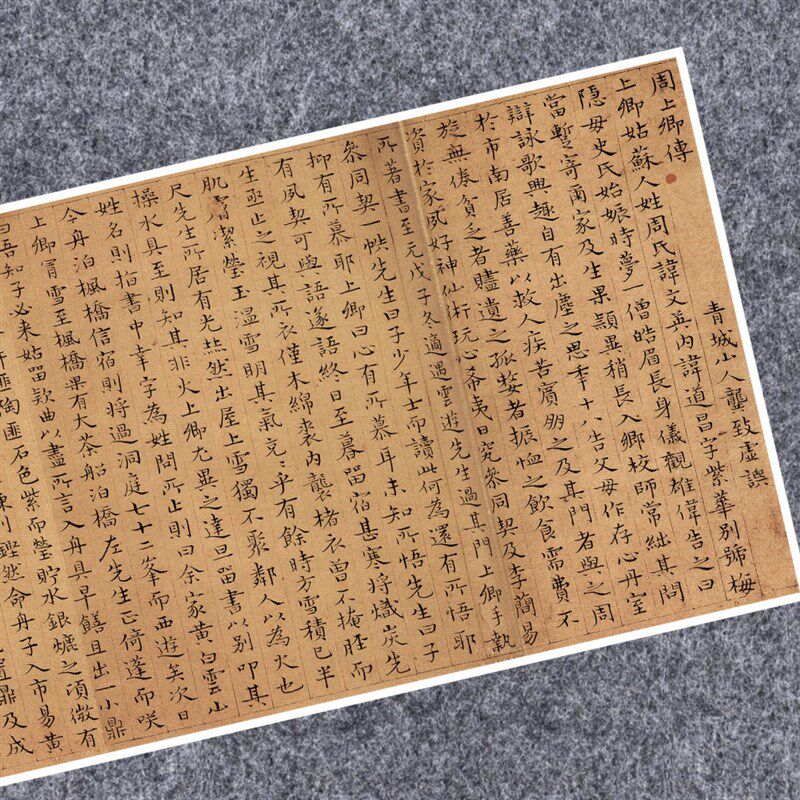 周上卿傳
青城小人龔致虛譔
上卿姑蘇人姓周氏諱文英內諱道昌字紫華別號梅
隱母史氏始娠時夢一僧皓眉長身儀觀雄偉告之曰
當蹔寄爾家及生果穎異稍長入鄉校師常絀其問
辯詠歌興趣自有出塵之思年十八告父母作存心丹室
於市南居善藥以救人疾苦賓朋之及其門者與之周
旋無倦貧乏者贐遺之孤嫠者振恤之飲食需費不
資於家夙好神仙術玩心希夷日究叅同契及李簡易
所著書至元戊子冬適遇雲遊先生過其門上卿手執
叅同契一帙先生曰子少年士而讀此何為還有所悟耶
抑有所慕耶上卿曰心有所慕耳未知所悟先生曰子
有夙契可與語遂語終日至暮留宿甚寒將熾炭先
生亟止之視其所衣僅木綿裘內襲楮衣曾不掩脛而
肌膚潔瑩玉溫雪明其氣充々乎有餘時方雪積已半
尺先生所居有光然出屋上雪獨不聚鄰人以為火也
操水具至則知其非火上卿尤異之達旦留書以別叩其
姓名則指書中幸字為姓問所止則曰余家黃白雲山
今舟泊楓橋信宿則將過洞庭七十二峯而西遊矣次日
上卿冒雪至楓橋果有大茶船泊橋左先生正倚篷而咲
曰吾知子必来姑留款曲以盡所言入舟具早饍且出一小鼎
匪陶匪石色紫而瑩貯水銀爊之頃微有
鏗然命舟子入市易黃
置鼎及成